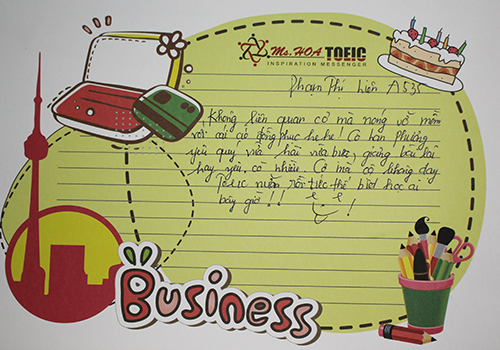 Ms. HOA TOEIC
INSPIRATION MESSENGER
Phạm Thị Liên A535
Không liên quan cơ mà nóng về mềm
với cái áo đồng phục he he! Cô Lan Phương
yêu quý vừa hài vừa bựa, giảng bài rất
hay yêu cô nhiều. Cô mà cô không dạy
TOEIC nữa rồi tức thế biết học ai
bây giờ!!
BUSINESS